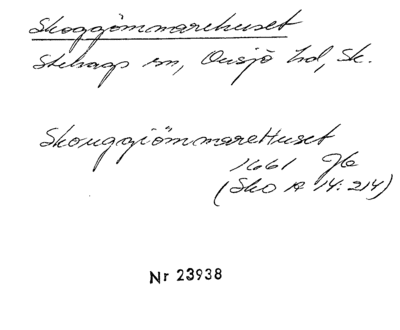 Skoggömmarehuset
Stehags sn, Onsjö hd, Sk.
SkouggiömmareHuset
1661 Jb
(Sko A 14: 214)
Nr 23938